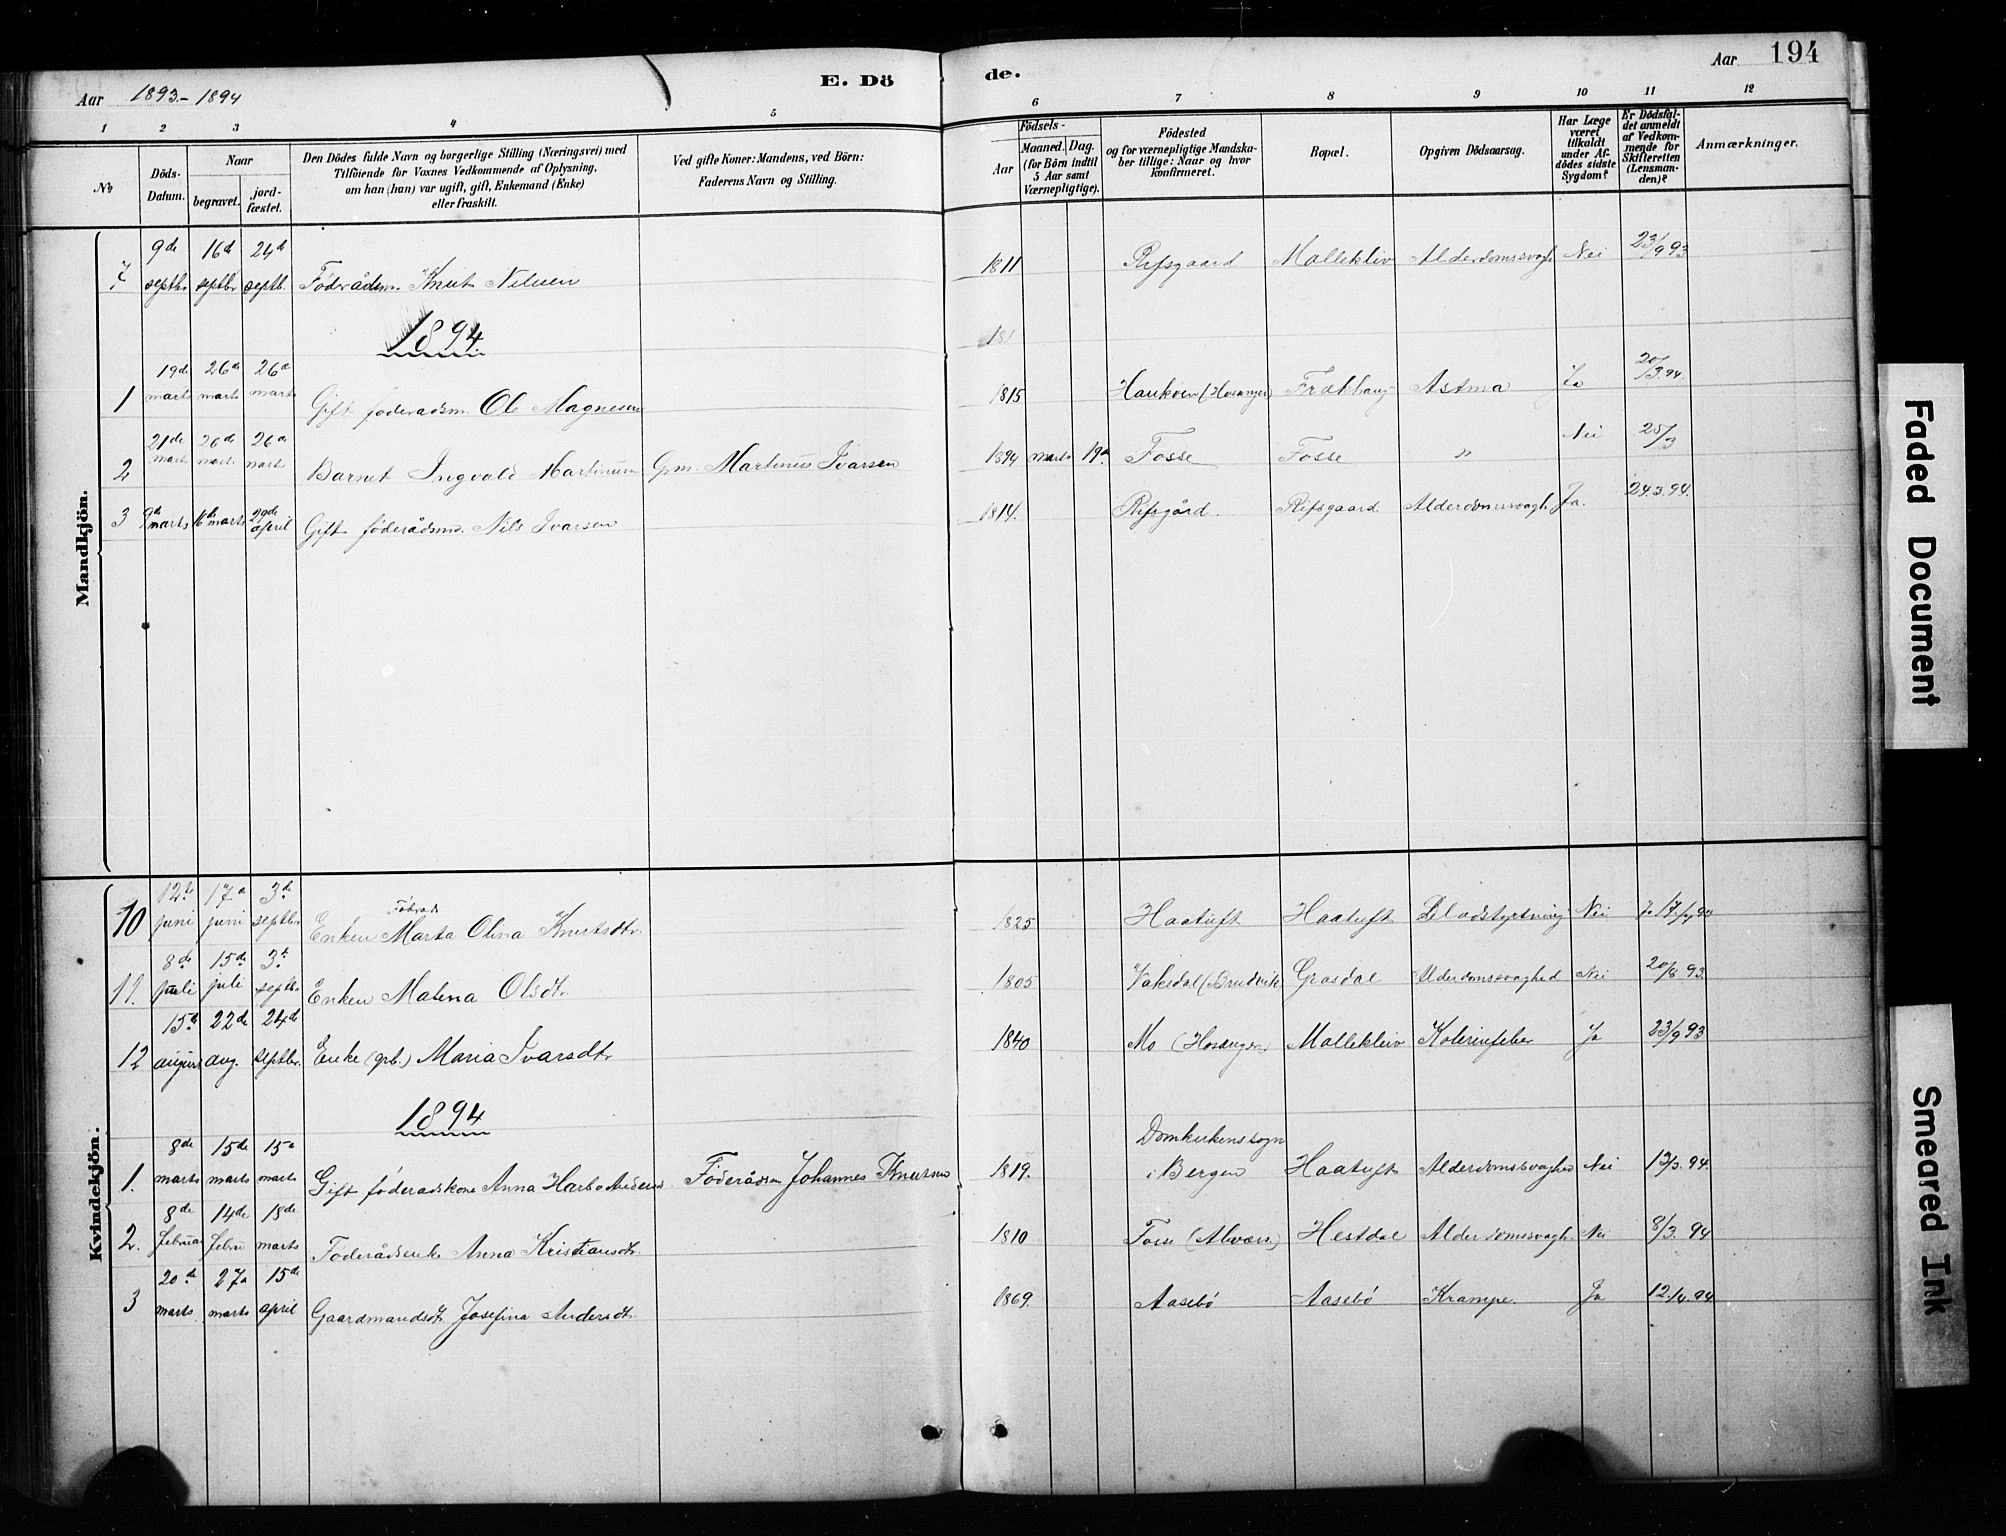 Aar 1893-1894
E. Dö
de.
Aar 194
1 2 3 4 5 6 7 8 9 10 11 12
No
Döds-
Datum.
Naar
begravet.
jord-
fæstet.
Den Dödes fulde Navn og borgerlige Stilling (Næringsvei) med
Tilföiende for Voxnes Vedkommende af Oplysning,
om han (hun) var ugift, gift, Enkemand (Enke)
eller fraskilt.
Ved gifte Koner: Mandens, ved Börn:
Faderens Navn og Stilling.
Födsels-
Aar
Maaned. Dag.
(for Börn indtil
5 Aar samt
Værnepligtige).
Födested
og for værnepligtige Mandska-
ber tillige: Naar og hvor
konfirmeret.
Bopæl.
Opgiven Dödsaarsag.
Har Læge
været
tilkaldt
under Af-
dödes sidste
Sygdom?
Er Dödsfal-
det anmeldt
af Vedkom-
mende for
Skifteretten
(Lensman-
den)?
Anmærkninger.
Mandkjön.
7 9de septbr 16d septbr 24d septb. Föderådsm. Knut Nilsen 1811 Rifsgaard Mollekleiv Alderdomssvagh Nei 23/9 93
1894.
181
1 19de marts 26d marts 26d marts Gift föderadsm. Ole Magnesen 1815 Haukoen (Hosanger) Frækhaug Astma Ja 20/3.94.
2 21de marts 26de mart. 26d marts Barnet Ingvald Martinusen Gm. Martinus Ivarsen 1894 marts 19d Fosse Fosse " Nei 25/3
3 9de marts 16de marts 29de april Gift föderådsm. Nils Ivarsen 1814. Rifsgård. Rifsgaard Alderdomssvagh. Ja. 24.3.94.
Kvindekjön.
Föderads
10 12te juni 17d juni 3de septbr Enken Marta Olina Knutsdtr. 1825 Haatuft Haatuft Blodstyrtning Nei
11. 8de juli 15de juli 3d septbr Enken Malena Olsdtr. 1805 Vaksdal (Brudvik Grasdal Alderdomssvaghed Nei 20/8 93.
12 15de august 22de aug. 24de septbr. Enke (grb.) Maria Ivarsdtr 1840 Mo (Hosanger) Mollekleiv Kolerinfeber Ja 23/9 93
1894
1. 8de marts 15de marts 15d marts Gift föderadskone Anna Harbo Andersd. Föderådsm Johannes Knutsen 1819. Domkirkens sogn
i Bergen Haatuft Alderdomssvaghed Nei 13/3.94.
2. 8de februar 14de febru 18de marts Föderådsenke Anna Kristiansdtr. 1810 Fosse (Alværs.) Hestdal Alderdomssvagh. Nei 8/3. 94
3 20de marts 27d marts 15de april Gaardmandsdtr. Josefina Andersdtr. 1869. Aasebö Aasebö Krampe. Ja 12./4.94
Faded Document
Smeared Ink